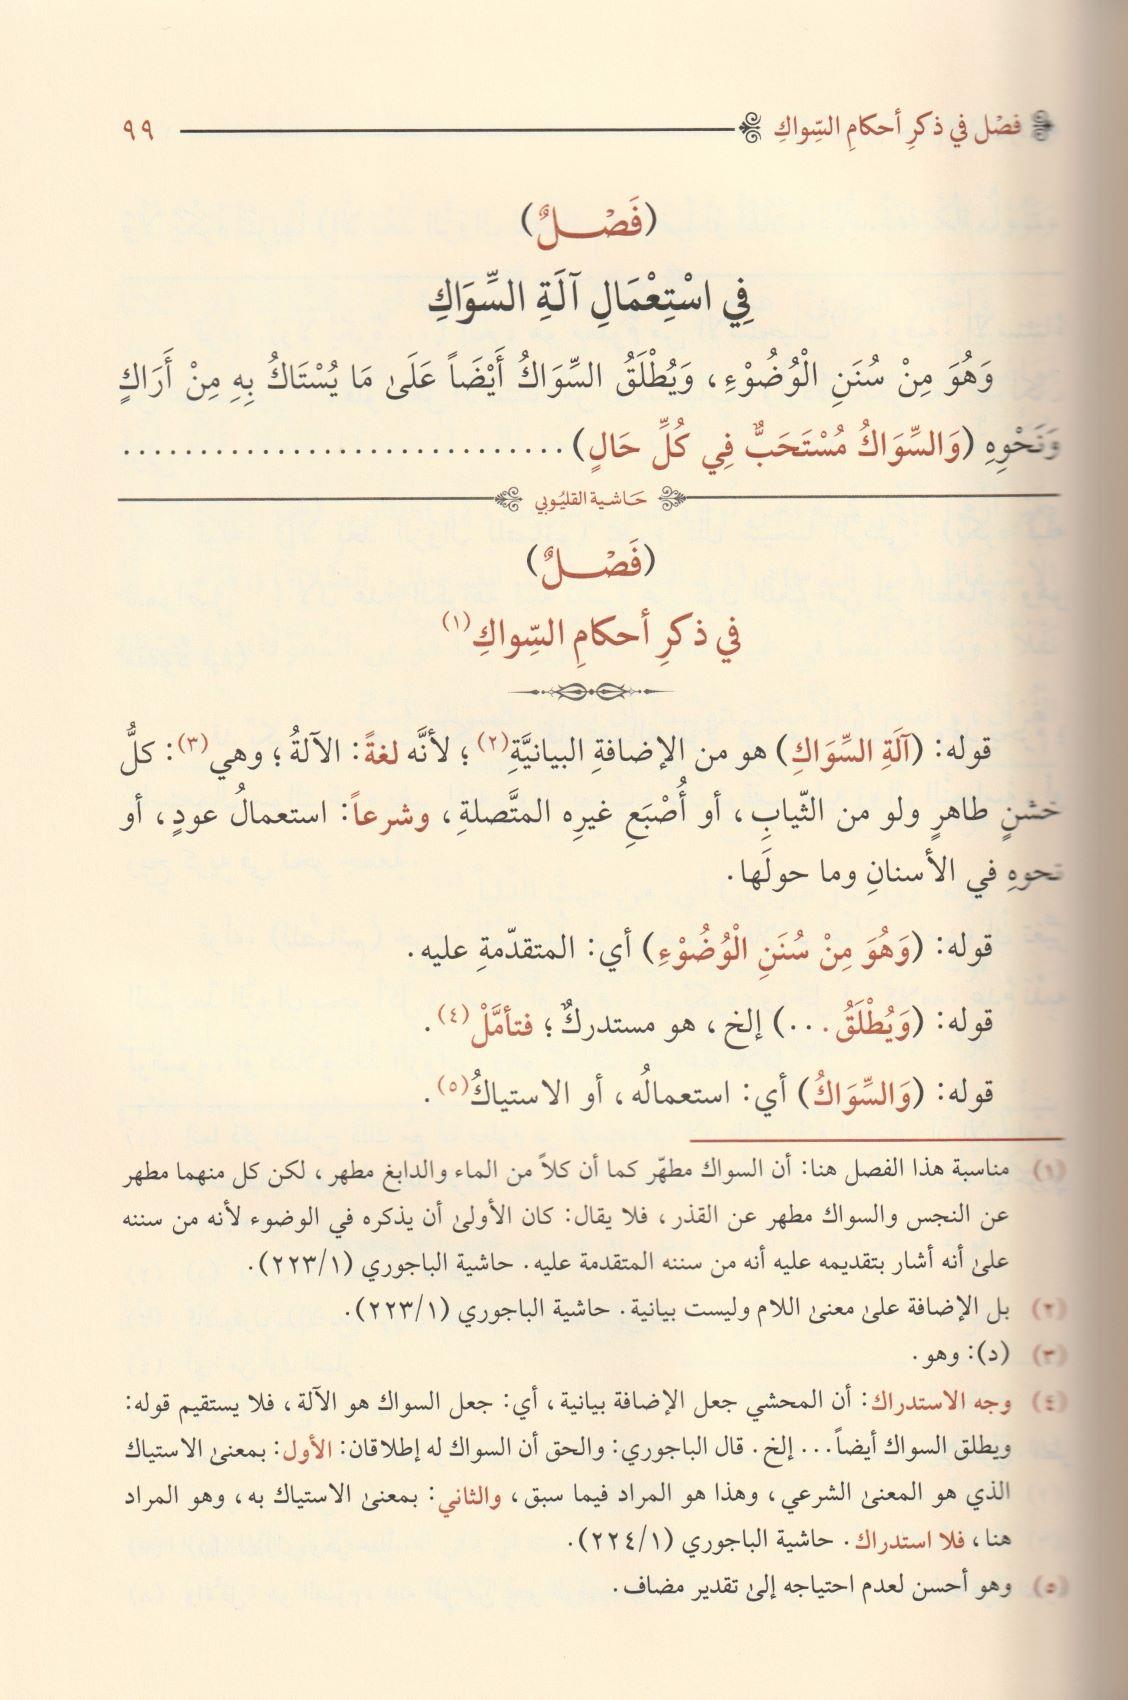 فصْل في ذكرِ أحكامِ السِّواكِ ٩٩
(فَصْـــلٌ)
فِي اسْتِعْمَالِ آلَةِ السِّوَاكِ
وَهُوَ مِنْ سُنَنِ الْوُضُوْءِ، وَيُطْلَقُ السِّوَاكُ أَيْضَاً عَلَىٰ مَا يُسْتَاكُ بِهِ مِنْ أَرَاكٍ
وَنَحْوِهِ (وَالسِّوَاكُ مُسْتَحَبٌّ فِي كُلِّ حَالٍ) ..............................
حَاشية القليُوبي
(فَصْـــلٌ)
في ذكرِ أحكامِ السِّواكِ(١)
قوله: (آلَةِ السِّوَاكِ) هو من الإضافةِ البيانيَّةِ(٢)؛ لأنَّه لغةً: الآلةُ؛ وهي(٣): كلُّ
خشنٍ طاهرٍ ولو من الثّيابِ، أو أُصْبَعِ غيرِه المتَّصلةِ، وشرعاً: استعمالُ عودٍ، أو
نحوِهِ في الأسنانِ وما حولَها.
قوله: (وَهُوَ مِنْ سُنَنِ الْوُضُوْءِ) أي: المتقدّمةِ عليه.
قوله: (وَيُطْلَقُ ...) إلخ، هو مستدركٌ؛ فتأمَّلْ(٤).
قوله: (وَالسِّوَاكُ) أي: استعمالُه، أو الاستياكُ(٥).
(١) مناسبة هذا الفصل هنا: أن السواك مطهّر كما أن كلاً من الماء والدابغ مطهر، لكن كل منهما مطهر
عن النجس والسواك مطهر عن القذر، فلا يقال: كان الأولىٰ أن يذكره في الوضوء لأنه من سننه
علىٰ أنه أشار بتقديمه عليه أنه من سننه المتقدمة عليه. حاشية الباجوري (٢٢٣/١).
(٢) بل الإضافة علىٰ معنىٰ اللام وليست بيانية. حاشية الباجوري (٢٢٣/١).
(٣) (د): وهو.
(٤) وجه الاستدراك: أن المحشي جعل الإضافة بيانية، أي: جعل السواك هو الآلة، فلا يستقيم قوله:
ويطلق السواك أيضاً... إلخ. قال الباجوري: والحق أن السواك له إطلاقان: الأول: بمعنىٰ الاستياك
الذي هو المعنىٰ الشرعي، وهذا هو المراد فيما سبق، والثاني: بمعنىٰ الاستياك به، وهو المراد
هنا، فلا استدراك. حاشية الباجوري (٢٢٤/١).
(٥) وهو أحسن لعدم احتياجه إلىٰ تقدير مضاف.